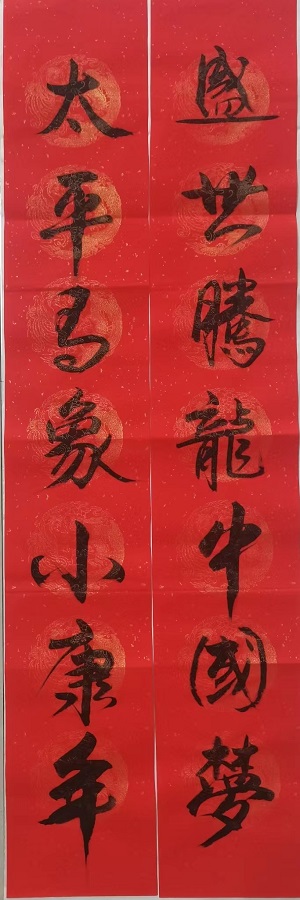 盛世騰龍中國夢
太平有象小康年